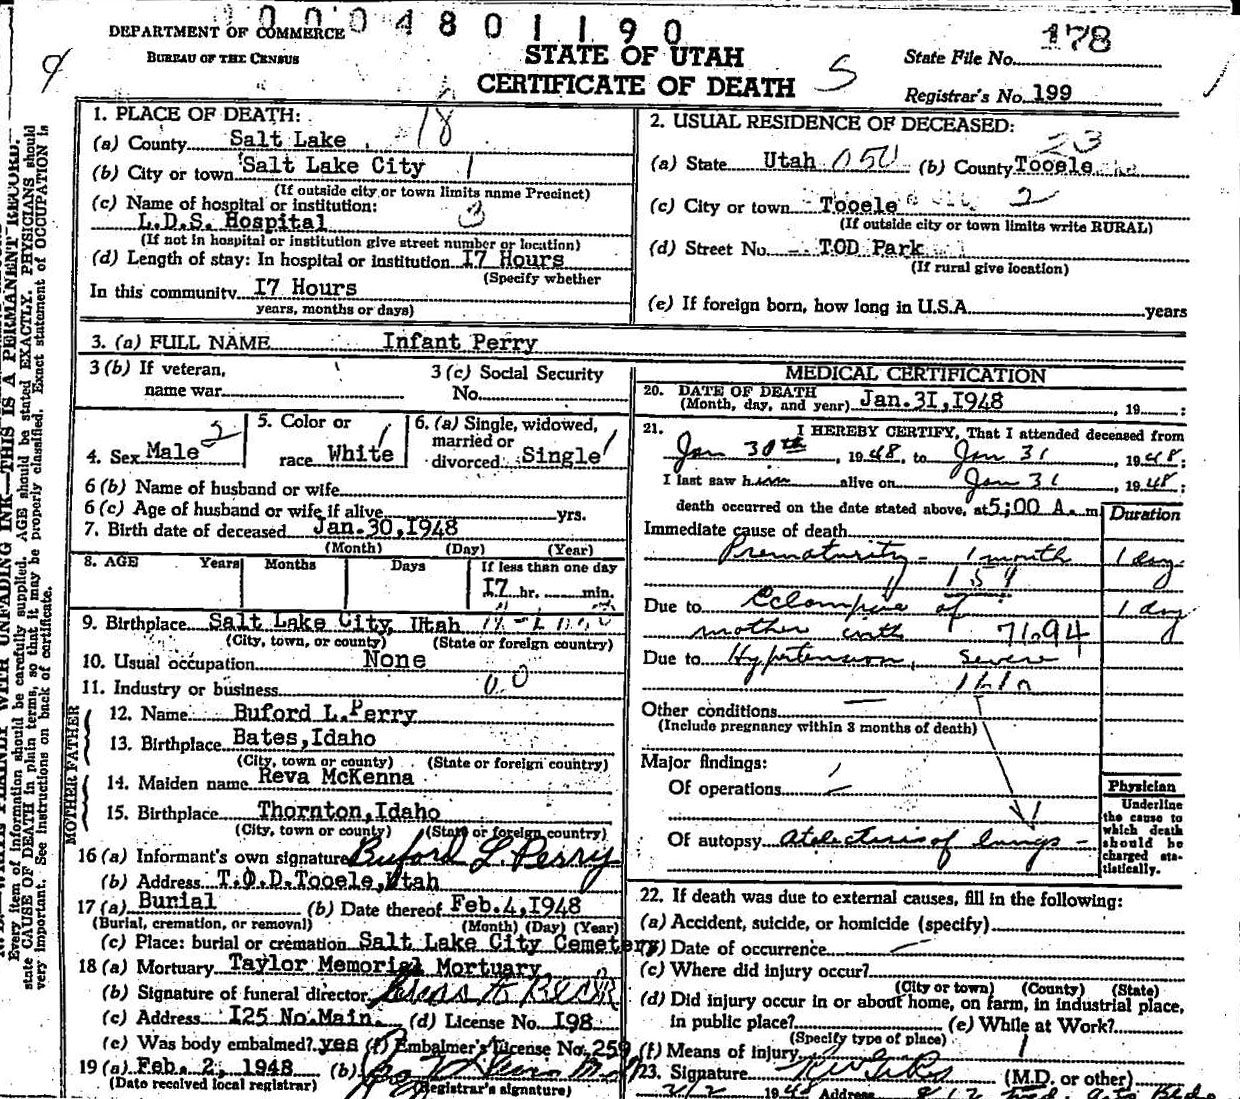 0 0 0 4 8 0 1 1 9 0
DEPARTMENT OF COMMERCE
BUREAU OF THE CENSUS
STATE OF UTAH
CERTIFICATE OF DEATH
S
State File No. 178
Registrar's No. 199
1. PLACE OF DEATH:
18
(a) County Salt Lake
(b) City or town Salt Lake City 1
(If outside city or town limits name Precinct)
(c) Name of hospital or institution:
L.D.S. Hospital 3
(If not in hospital or institution give street number or location)
(d) Length of stay: In hospital or institution I7 Hours
(Specify whether
In this community I7 Hours
years, months or days)
2. USUAL RESIDENCE OF DECEASED:
23
(a) State Utah 050 (b) County Tooele
(c) City or town Tooele 2
(If outside city or town limits write RURAL)
(d) Street No. TOD Park
(If rural give location)
(e) If foreign born, how long in U.S.A. years
3. (a) FULL NAME Infant Perry
3 (b) If veteran,
name war
3 (c) Social Security
No.
4. Sex Male 2
5. Color or
race White 1
6. (a) Single, widowed,
married or
divorced Single 1
6 (b) Name of husband or wife
6 (c) Age of husband or wife if alive yrs.
7. Birth date of deceased Jan.30,1948
(Month) (Day) (Year)
8. AGE Years Months Days If less than one day
I7 hr. min.
9. Birthplace Salt Lake City, Utah
(City, town, or county) (State or foreign country)
10. Usual occupation None
11. Industry or business 00
FATHER
12. Name Buford L.Perry
13. Birthplace Bates,Idaho
(City, town or county) (State or foreign country)
MOTHER
14. Maiden name Reva McKenna
15. Birthplace Thornton,Idaho
(City, town or county) (State or foreign country)
16 (a) Informant's own signature Buford L. Perry
(b) Address T.O.D.Tooele,Utah
17 (a) Burial (b) Date thereof Feb.4,I948
(Burial, cremation, or removal) (Month) (Day) (Year)
(c) Place: burial or cremation Salt Lake City Cemetery
18 (a) Mortuary Taylor Memorial Mortuary
(b) Signature of funeral director
(c) Address I25 No.Main. (d) License No. I98
(e) Was body embalmed? yes (f) Embalmer's License No. 259
19 (a) Feb. 2, 1948 (b)
(Date received local registrar) (Registrar's signature)
MEDICAL CERTIFICATION
20. DATE OF DEATH
(Month, day, and year) Jan.3I,I948 , 19 ;
21. I HEREBY CERTIFY, That I attended deceased from
Jan 30th, 1948, to Jan 31, 1948;
I last saw him alive on Jan 31, 1948;
death occurred on the date stated above, at 5;00 A. m.
Duration
Immediate cause of death
Prematurity - 1 month 1 day
159
Due to Eclampsia of 1 day
mother with 7694
Due to Hypertension, Severe
Other conditions —
(Include pregnancy within 3 months of death)
Major findings:
Of operations —
Of autopsy Atelectasis of lungs -
1
Physician
Underline
the cause to
which death
should be
charged sta-
tistically.
22. If death was due to external causes, fill in the following:
(a) Accident, suicide, or homicide (specify)
(b) Date of occurrence
(c) Where did injury occur?
(City or town) (County) (State)
(d) Did injury occur in or about home, on farm, in industrial place,
in public place? (e) While at Work?
(Specify type of place)
(f) Means of injury
23. Signature (M.D. or other)
2/2 1948 Address
WRITE PLAINLY WITH UNFADING INK—THIS IS A PERMANENT RECORD.
Every item of information should be carefully supplied. AGE should be stated EXACTLY. PHYSICIANS should
state CAUSE OF DEATH in plain terms, so that it may be properly classified. Exact statement of OCCUPATION is
very important. See instructions on back of certificate.